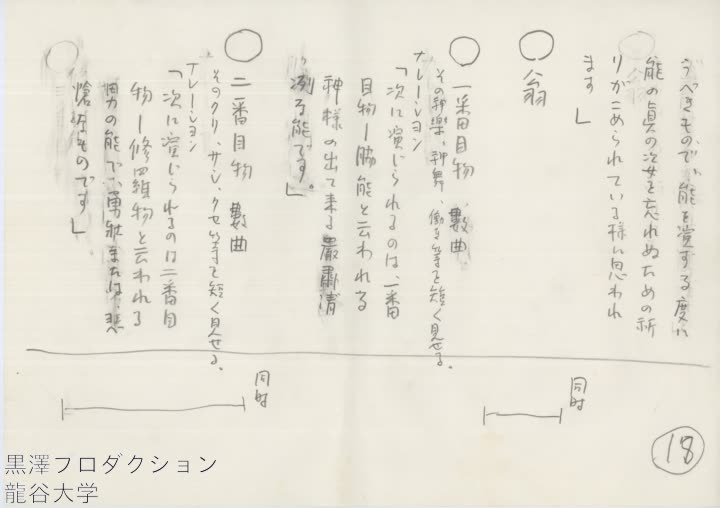 うべきもので、能を演ずる度に
能の真の姿を忘れぬための祈
りがこめられている様に思われ
ます」
○
翁
○
一番目物 数曲
その神楽、神舞、働き等を短く見せる。
ナレーション
「次に演じられるのは、一番
目物―脇能と云われる
神様の出て来る厳粛清
冽な能です。」
○
二番目物 數曲
そのクリ、サシ、クセ等を短く見せる。
ナレーション
「次に演じられるのは二番目
物―修羅物と云われる
男の能で、勇壮または、悲
愴なものです」
○
同時
同時
18
黒澤プロダクション
龍谷大学